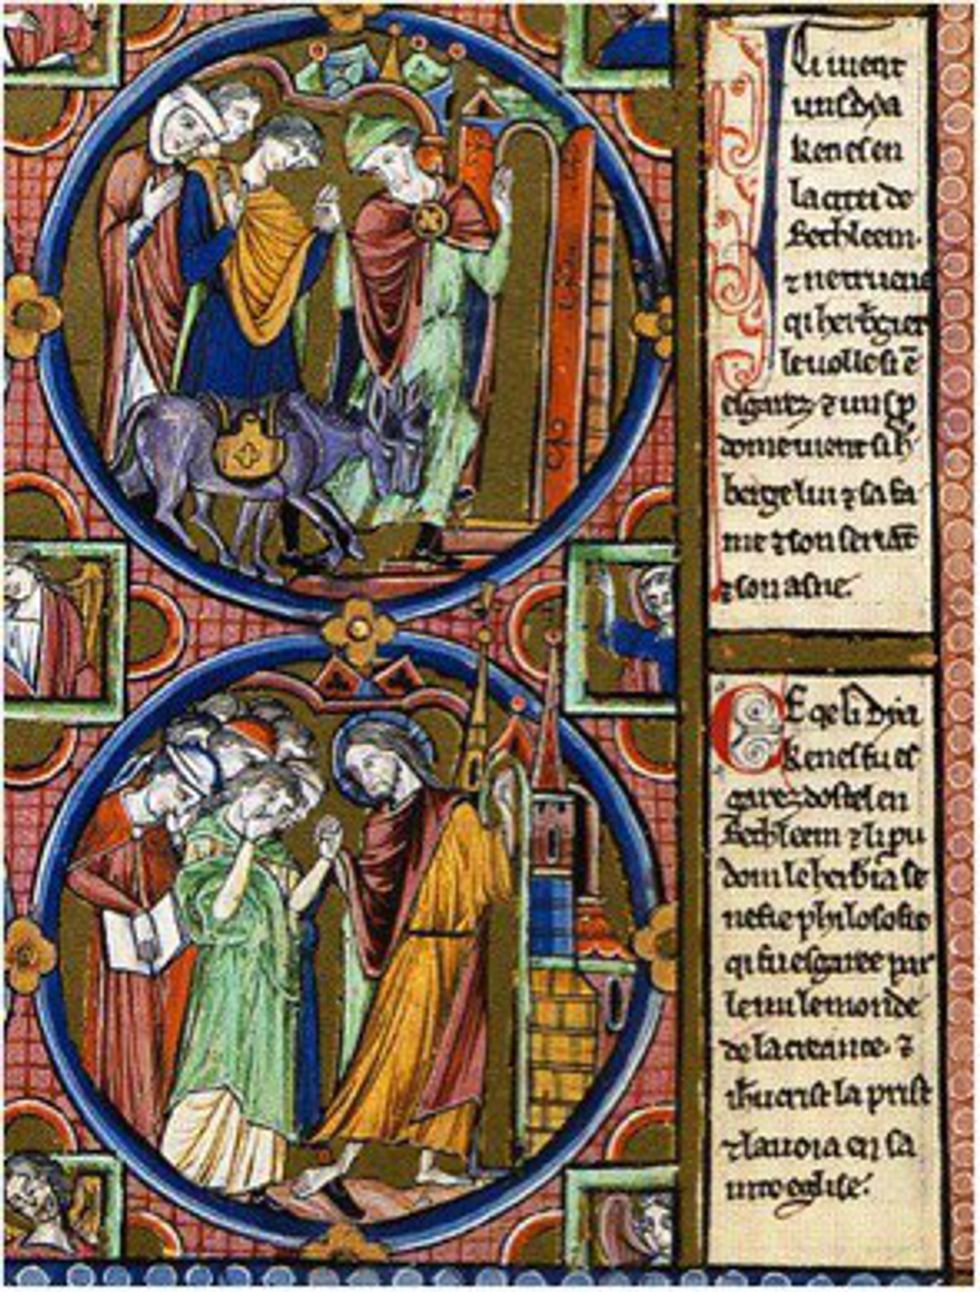 Ici uient
uns dya
kenes en
la citei de
Bethleem.
⁊ ne trueue
qi herbgier
le uoille si ē
esgarez ⁊ uns p
dome uient si h
berge lui ⁊ sa fa
me ⁊ son seruāt
⁊ son asne.
Ce qe li dya
kenes fu es
garez dostel en
Bethleem ⁊ li pu
dom le herbia se
nefie philosofie
qi fu esgaree par
le mi le monde
de la creance. ⁊
ihucrist la prist
⁊ lauoia en sa
inte eglise.